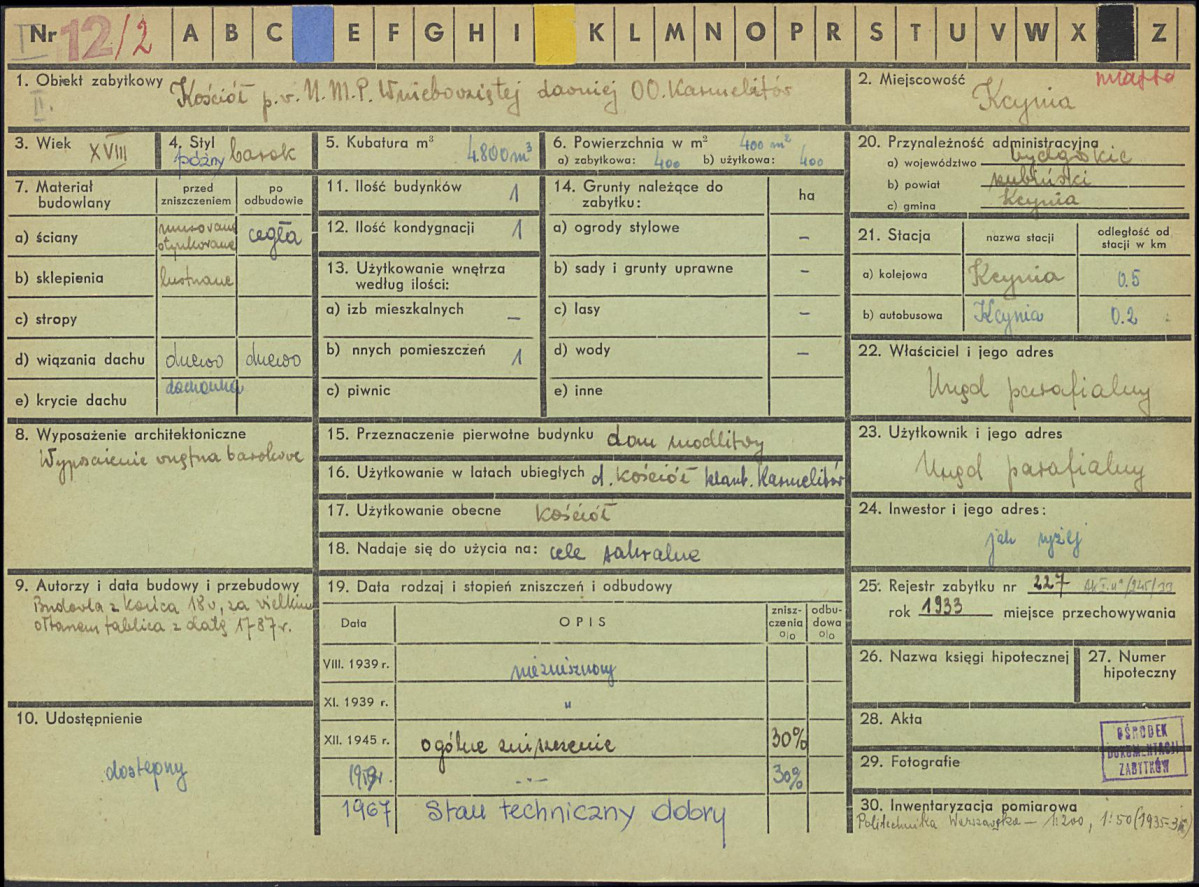 Nr 12/2 A B C E F G H I K L M N O P R S T U V W X Z
1. Obiekt zabytkowy Kościół p.w. N.M.P. Wniebowziętej dawniej OO. Karmelitów
II.
2. Miejscowość Kcynia miasto
3. Wiek XVIII
4. Styl późny barok
5. Kubatura m³ 4.800 m³
6. Powierzchnia w m² 400 m²
a) zabytkowa: 400 b) użytkowa: 400
20. Przynależność administracyjna
a) województwo bydgoskie
b) powiat szubiński
c) gmina Kcynia
7. Materiał budowlany
przed zniszczeniem
po odbudowie
a) ściany murowane otynkowane cegła
b) sklepienia lustrzane
c) stropy
d) wiązania dachu drzewo drzewo
e) krycie dachu dachówka
11. Ilość budynków 1
12. Ilość kondygnacji 1
13. Użytkowanie wnętrza według ilości:
a) izb mieszkalnych –
b) nnych pomieszczeń 1
c) piwnic
14. Grunty należące do zabytku: ha
a) ogrody stylowe –
b) sady i grunty uprawne –
c) lasy –
d) wody –
e) inne
21. Stacja nazwa stacji odległość od stacji w km
a) kolejowa Kcynia 0.5
b) autobusowa Kcynia 0.2
22. Właściciel i jego adres
Urząd parafialny
8. Wyposażenie architektoniczne
Wyposażenie wnętrza barokowe
15. Przeznaczenie pierwotne budynku dom modlitwy
16. Użytkowanie w latach ubiegłych d. kościół klaszt. Karmelitów
17. Użytkowanie obecne kościół
18. Nadaje się do użycia na: cele sakralne
23. Użytkownik i jego adres
Urząd parafialny
24. Inwestor i jego adres:
jak wyżej
9. Autorzy i data budowy i przebudowy
Budowla z końca 18 w, za wielkim
ołtarzem tablica z datą 1787 r.
19. Data rodzaj i stopień zniszczeń i odbudowy
Data OPIS zniszczenia % odbudowa %
VIII. 1939 r. niezniszczony
XI. 1939 r. "
XII. 1945 r. ogólne zniszczenie 30%
-·- 30%
1967 Stan techniczny dobry
25. Rejestr zabytku nr 227
rok 1933 miejsce przechowywania
26. Nazwa księgi hipotecznej
27. Numer hipoteczny
10. Udostępnienie
dostępny
28. Akta
29. Fotografie
OŚRODEK
DOKUMENTACJI
ZABYTKÓW
30. Inwentaryzacja pomiarowa
Politechnika Warszawska – 1:200, 1:50 (1935-36)